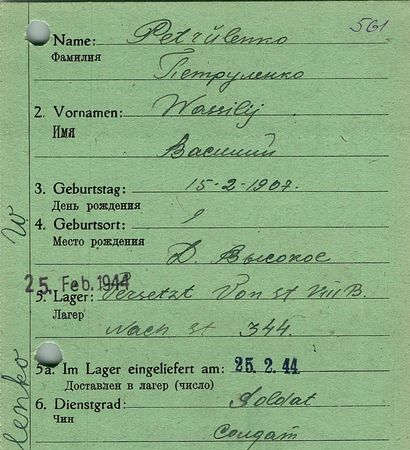 561
Name: Petrulenko
Фамилия
Петруленко
2. Vornamen: Wassilij
Имя
Василий
3. Geburtstag: 15-2-1907.
День рождения
4. Geburtsort:
Место рождения
Д. Высокое
25. Feb. 1944
5. Lager: Versetzt Von St VIII B.
Лагер
Nach St 344.
5a. Im Lager eingeliefert am: 25.2.44
Доставлен в лагер (число)
6. Dienstgrad: Soldat
Чин
Солдат
lenko W